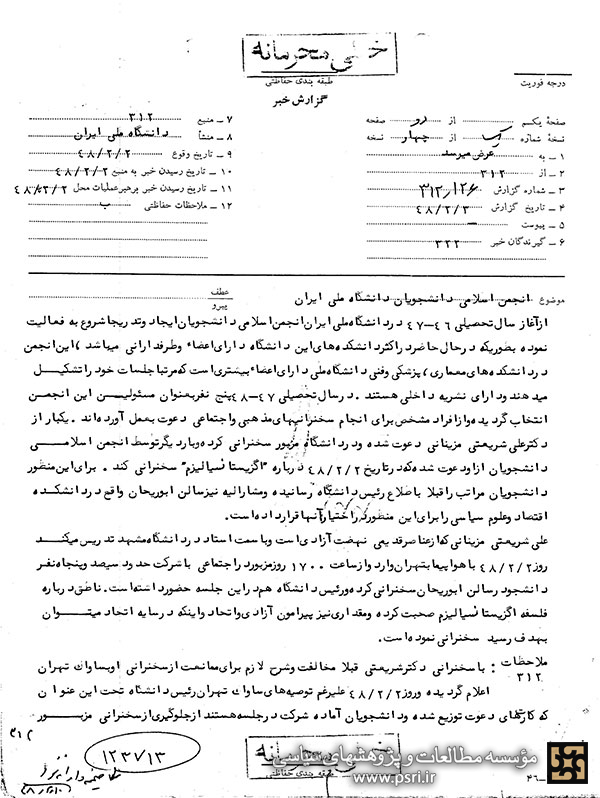 خیلی محرمانه
طبقه بندی حفاظتی
گزارش خبر
درجه فوریت
صفحه یکم از دو صفحه
نسخه شماره یک از چهار نسخه
۱ ـ به عرض میرسد
۲ ـ از ۳۱۲
۳ ـ شماره گزارش ۳۱۲/۱۲۶
۴ ـ تاریخ گزارش ۴۸/۲/۳
۵ ـ پیوست ـ
۶ ـ گیرندگان خبر ۳۲۲
۷ ـ منبع ۳۱۲
۸ ـ منشأ دانشگاه ملی ایران
۹ ـ تاریخ وقوع ۴۸/۲/۲
۱۰ ـ تاریخ رسیدن خبر به منبع ۴۸/۲/۲
۱۱ ـ تاریخ رسیدن خبر برهبر عملیات محل ۴۸/۲/۲
۱۲ ـ ملاحظات حفاظتی ب
موضوع انجمن اسلامی دانشجویان دانشگاه ملی ایران
عطف
پیرو
از آغاز سال تحصیلی ۴۶-۴۷ در دانشگاه ملی ایران انجمن اسلامی دانشجویان ایجاد و تدریجا شروع به فعالیت
نموده بطوریکه در حال حاضر در اکثر دانشکده های این دانشگاه دارای اعضاء و طرفدارانی میباشد ، این انجمن
در دانشکده های معماری ، پزشکی وفنی دانشگاه ملی دارای اعضاء بیشتری است که مرتبا جلسات خود را تشکیل
میدهند و دارای نشریه داخلی هستند . در سال تحصیلی ۴۷-۴۸ پنج نفر بعنوان مسئولین این انجمن
انتخاب گردیده و از افراد مشخص برای انجام سخنرانیهای مذهبی واجتماعی دعوت بعمل آورده اند . یکبار از
دکتر علی شریعتی مزینانی دعوت شده و در دانشگاه مزبور سخنرانی کرده و بار دیگر توسط انجمن اسلامی
دانشجویان از او دعوت شده که در تاریخ ۴۸/۲/۲ درباره "اگزیستانسیالیزم" سخنرانی کند . برای این منظور
دانشجویان مراتب را قبلا باطلاع رئیس دانشگاه رسانیده و مشارالیه نیز سالن ابوریحان واقع در دانشکده
اقتصاد و علوم سیاسی را برای این منظور در اختیار آنها قرار داده است.
علی شریعتی مزینانی که از عناصر قدیمی نهضت آزادی است و با سمت استاد در دانشگاه مشهد تدریس میکند
روز ۴۸/۲/۲ با هواپیما بتهران وارد و از ساعت ۱۷۰۰ روز مزبور در اجتماعی با شرکت حدود سیصد و پنجاه نفر
دانشجو در سالن ابوریحان سخنرانی کرده و رئیس دانشگاه هم در این جلسه حضور داشته است. ناطق درباره
فلسفه اگزیستانسیالیزم صحبت کرده و مقداری نیز پیرامون آزادی و اتحاد و اینکه در سایه اتحاد میتوان
بهدف رسید سخنرانی نموده است.
ملاحظات : با سخنرانی دکتر شریعتی قبلا مخالفت و شرح لازم برای ممانعت از سخنرانی او بساواک تهران
۳۱۲
اعلام گردیده و روز ۴۸/۲/۲ علیرغم توصیه های ساواک تهران رئیس دانشگاه تحت این عنوان
که کارتهای دعوت توزیع شده و دانشجویان آماده شرکت در جلسه هستند از جلوگیری از سخنرانی مزبور
۱۲۳۷۱۳
خیلی محرمانه
طبقه بندی حفاظتی
مؤسسه مطالعات و پژوهشهای سیاسی
www.psri.ir